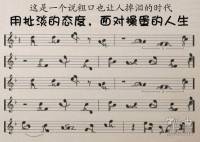 这是一个说粗口也让人掉泪的时代
用扯淡的态度，面对操蛋的人生